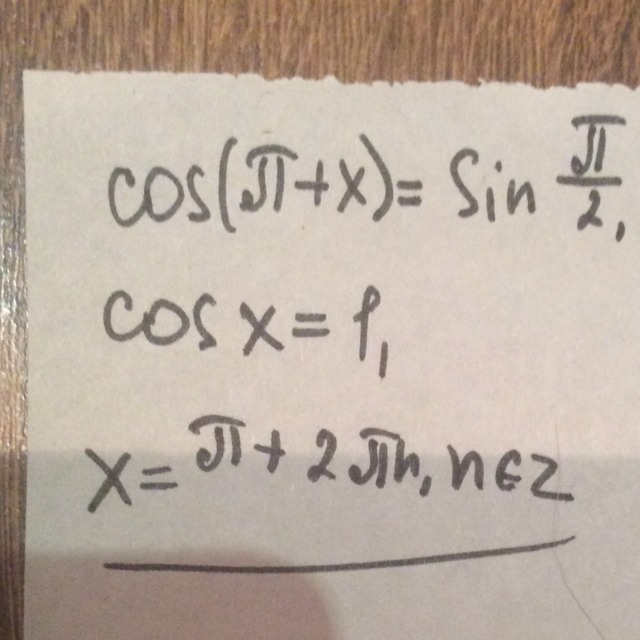 cos(π+x)= sin π/2,
cos x = 1,
x = π + 2πn, n∈Z